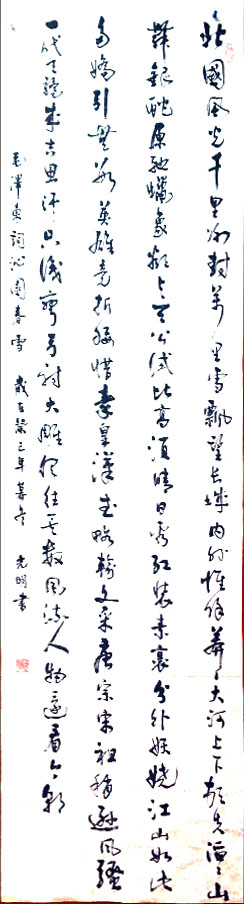 北國風光千里冰封萬里雪飄望長城內外惟餘莽々大河上下頓失滔々山
舞銀蛇原馳蠟象欲与天公試比高須晴日看紅裝素裹分外妖嬈江山如此
多嬌引無數英雄竟折腰惜秦皇漢武略輸文采唐宗宋祖稍遜風騷
一代天驕成吉思汗只識彎弓射大雕俱往矣數風流人物還看今朝
毛澤東詞沁園春雪 歲在癸巳年暮冬 光明書